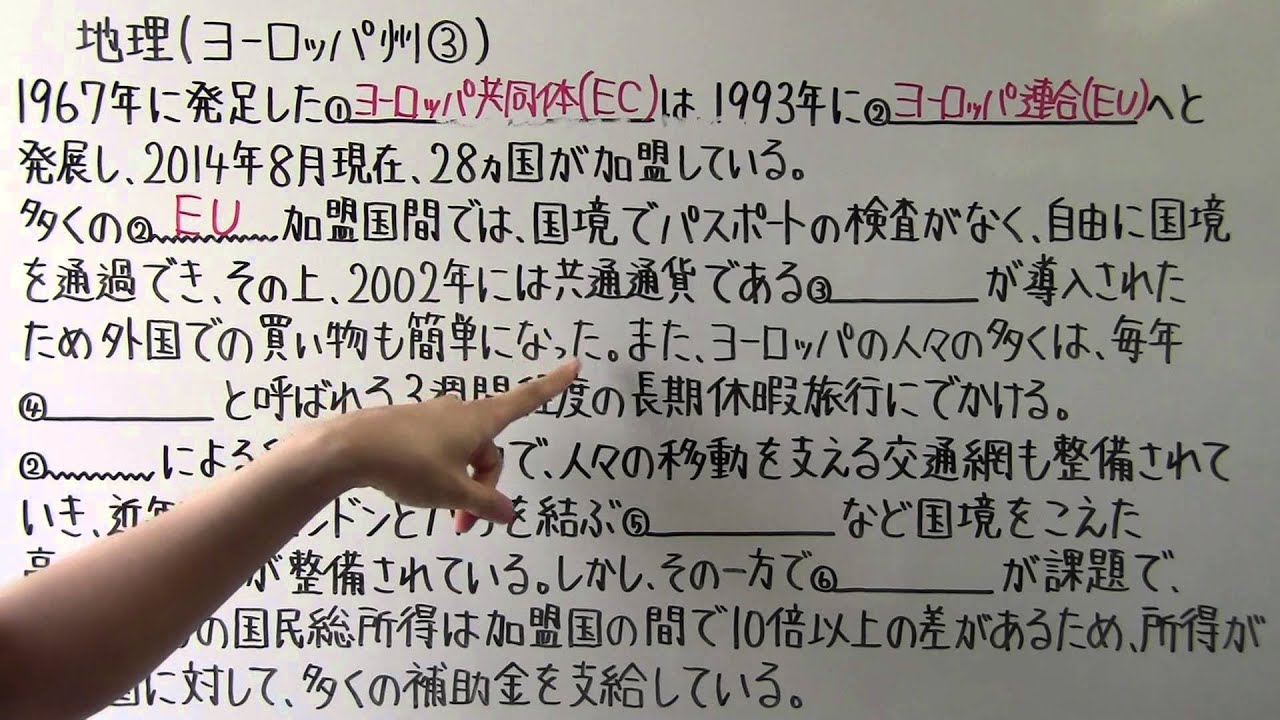 地理(ヨーロッパ州③)
1967年に発足した①ヨーロッパ共同体(EC)は1993年に②ヨーロッパ連合(EU)へと
発展し、2014年8月現在、28ヵ国が加盟している。
多くの②EU加盟国間では、国境でパスポートの検査がなく、自由に国境
を通過でき、その上、2002年には共通通貨である③が導入された
ため外国での買い物も簡単になった。また、ヨーロッパの人々の多くは、毎年
④と呼ばれる3週間程度の長期休暇旅行にでかける。
②による で、人々の移動を支える交通網も整備されて
いき、近年 ンドンとパリを結ぶ⑤など国境をこえた
が整備されている。しかし、その一方で⑥が課題で、
の国民総所得は加盟国の間で10倍以上の差があるため、所得が
国に対して、多くの補助金を支給している。